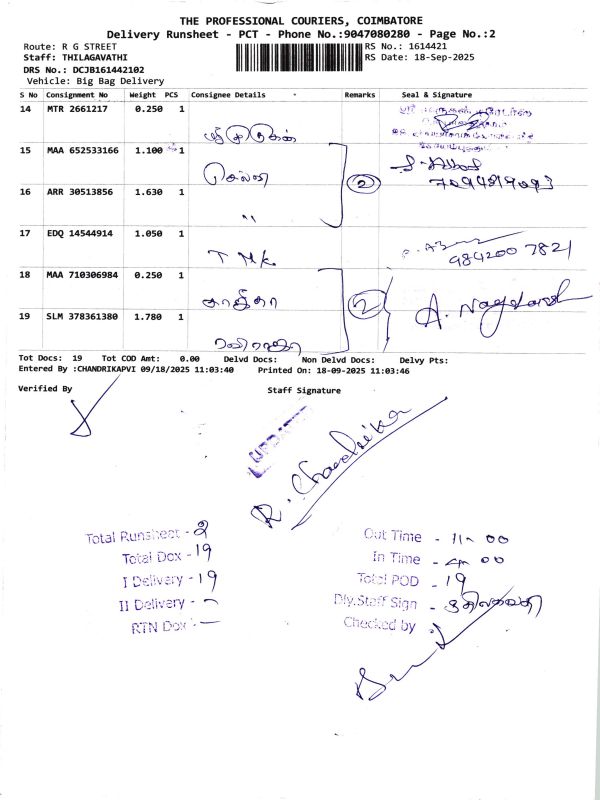 THE PROFESSIONAL COURIERS, COIMBATORE
Delivery Runsheet - PCT - Phone No.:9047080280 - Page No.:2
Route: R G STREET
RS No.: 1614421
Staff: THILAGAVATHI
RS Date: 18-Sep-2025
DRS No.: DCJB161442102
Vehicle: Big Bag Delivery
S No Consignment No Weight PCS Consignee Details Remarks Seal & Signature
14 MTR 2661217 0.250 1
15 MAA 652533166 1.100 1
செல்வி
2
7094819093
16 ARR 30513856 1.630 1
"
17 EDQ 14544914 1.050 1
T M K
984200 7821
18 MAA 710306984 0.250 1
2
A. Nagaraj
19 SLM 378361380 1.780 1
Tot Docs: 19 Tot COD Amt: 0.00 Delvd Docs: Non Delvd Docs: Delvy Pts:
Entered By :CHANDRIKAPVI 09/18/2025 11:03:40 Printed On: 18-09-2025 11:03:46
Verified By
Staff Signature
UPDATED
R. Chandrika
Total Runsheet - 2
Total Dox - 19
I Delivery - 19
II Delivery -
RTN Dox : -
Out Time - 11-00
In Time - 4-00
Total POD - 19
Dly.Staff Sign - திலகவதி
Checked by